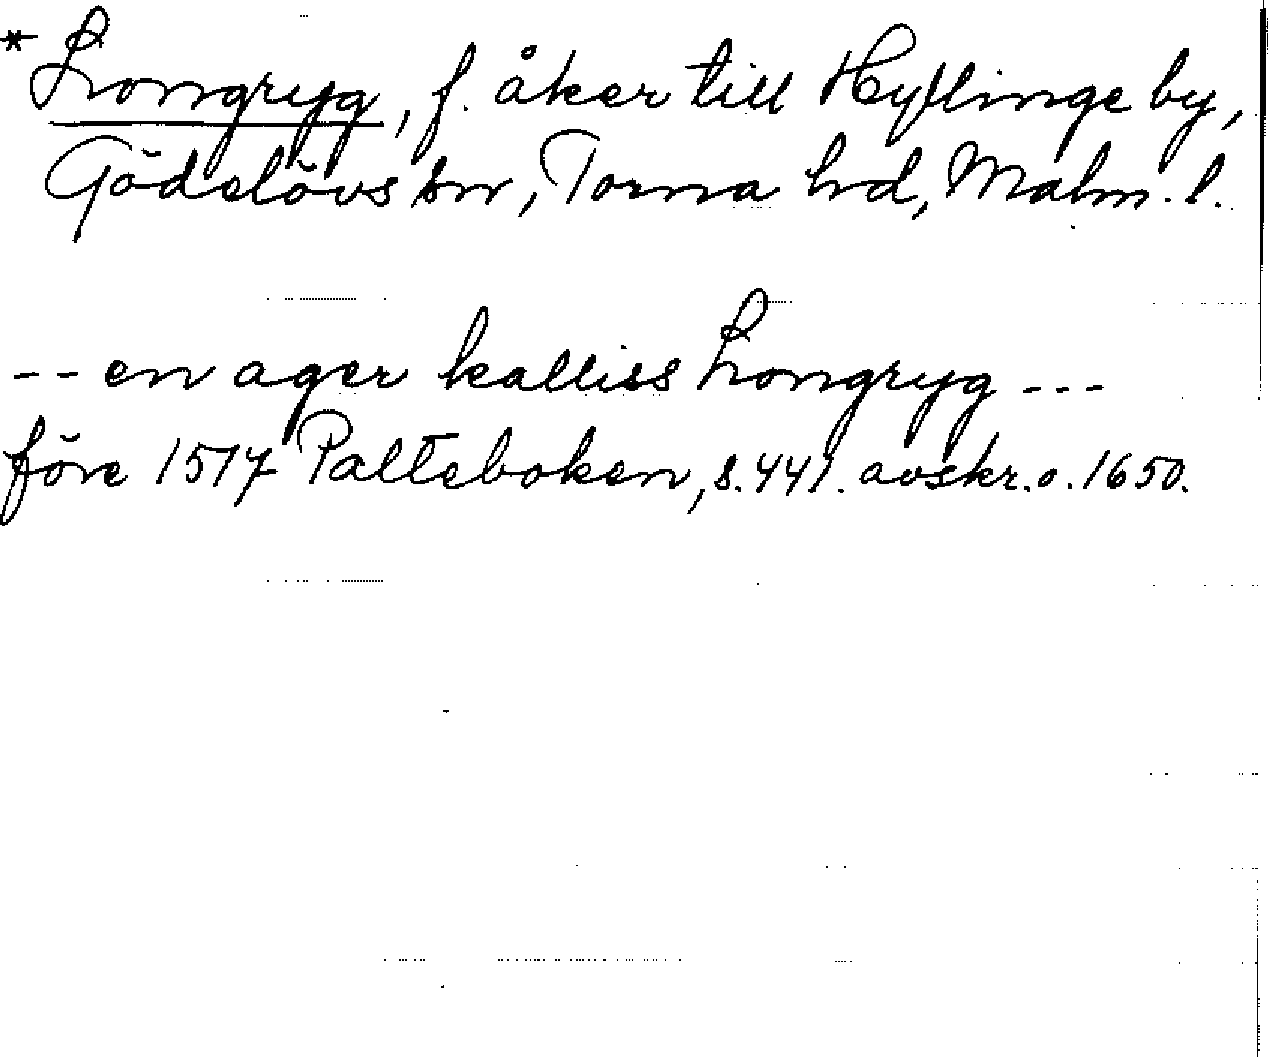 * Longryg, f. åker till Hyflinge by,
Gödelövs sn, Torna hd, Malm. l.
-- en ager kalliss Longryg ---
före 1517 Palteboken, s. 441. avskr. o. 1650.